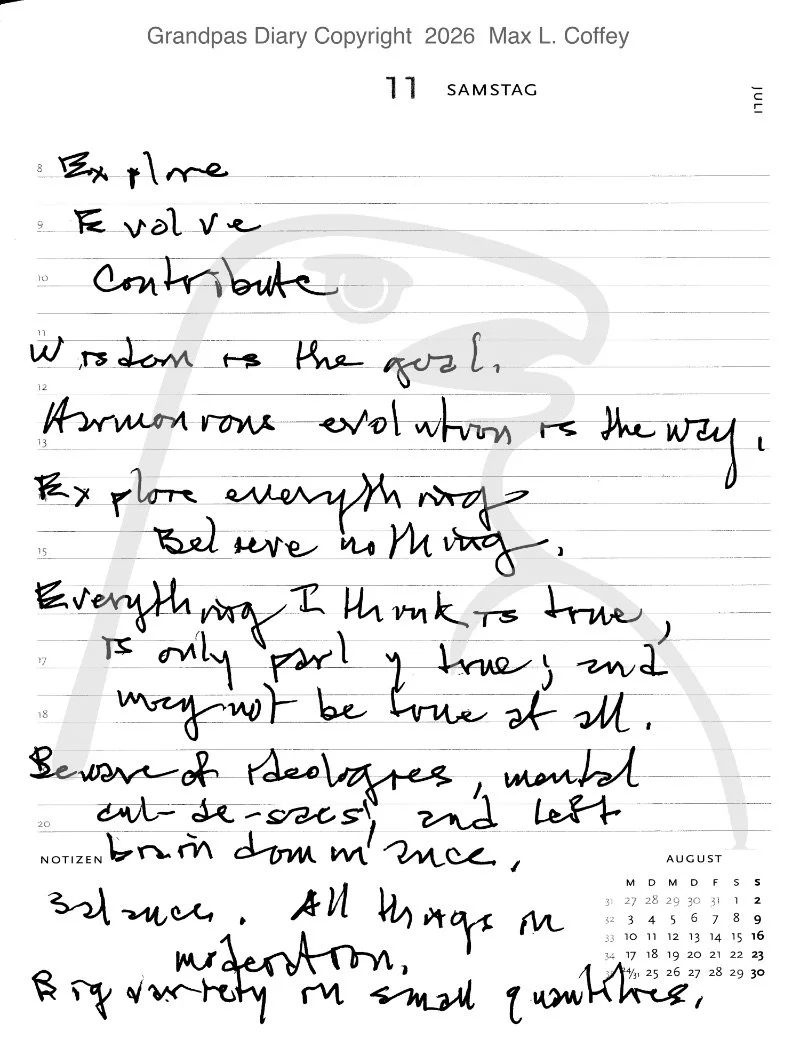 Grandpas Diary Copyright 2026 Max L. Coffey
11 SAMSTAG
JULI
8 Explore
9 Evolve
10 Contribute
11
Wisdom is the goal.
12
Harmonious evolution is the way.
13
Explore everything
Believe nothing.
15
Everything I think is true,
is only partly true; and
17
may not be true at all.
18
Beware of ideologies, mental
cul-de-sacs, and left
20
brain dominance.
NOTIZEN
Balance. All things in
moderation.
Big variety in small quantities.
AUGUST
M D M D F S S
31 27 28 29 30 31 1 2
32 3 4 5 6 7 8 9
33 10 11 12 13 14 15 16
34 17 18 19 20 21 22 23
24/31 25 26 27 28 29 30